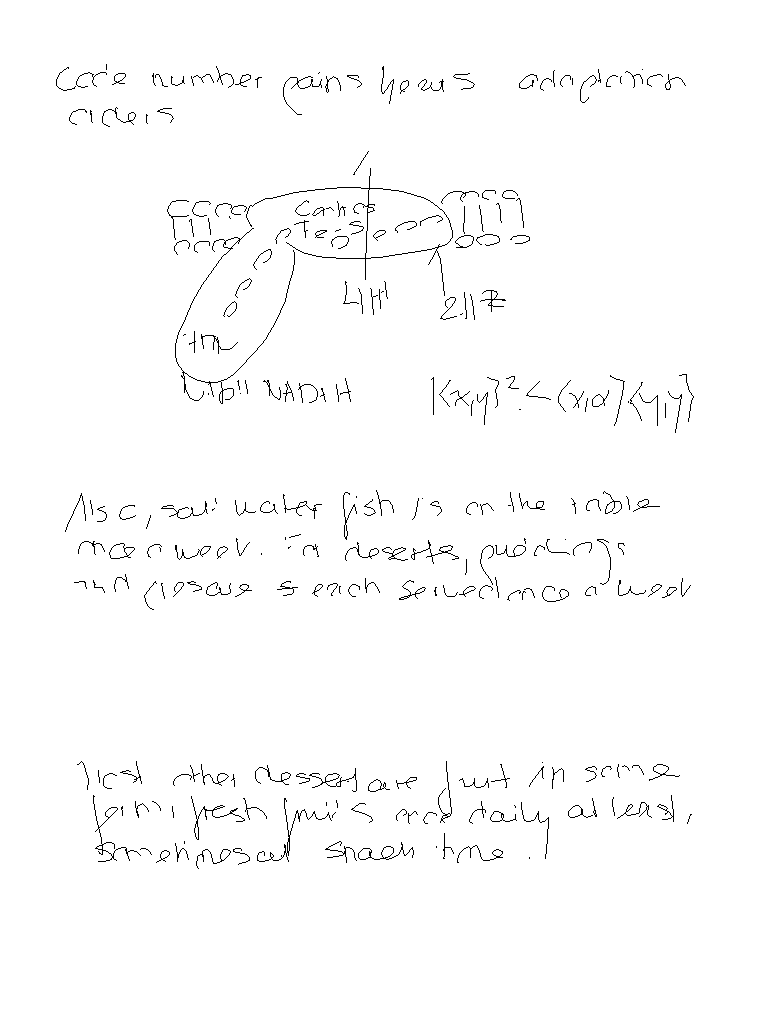 Code number pains adaptation
riders
4H+
NADH
|⟨x,y⟩².<⟨x,α⟩.⟨y,y⟩
Also, salt water fish is on the table
once a week. For deserts, puddings
and are each served once a week
Most other dessert are fruit in some
form, fresh fruits once daily at least,
sometimes at snack time.